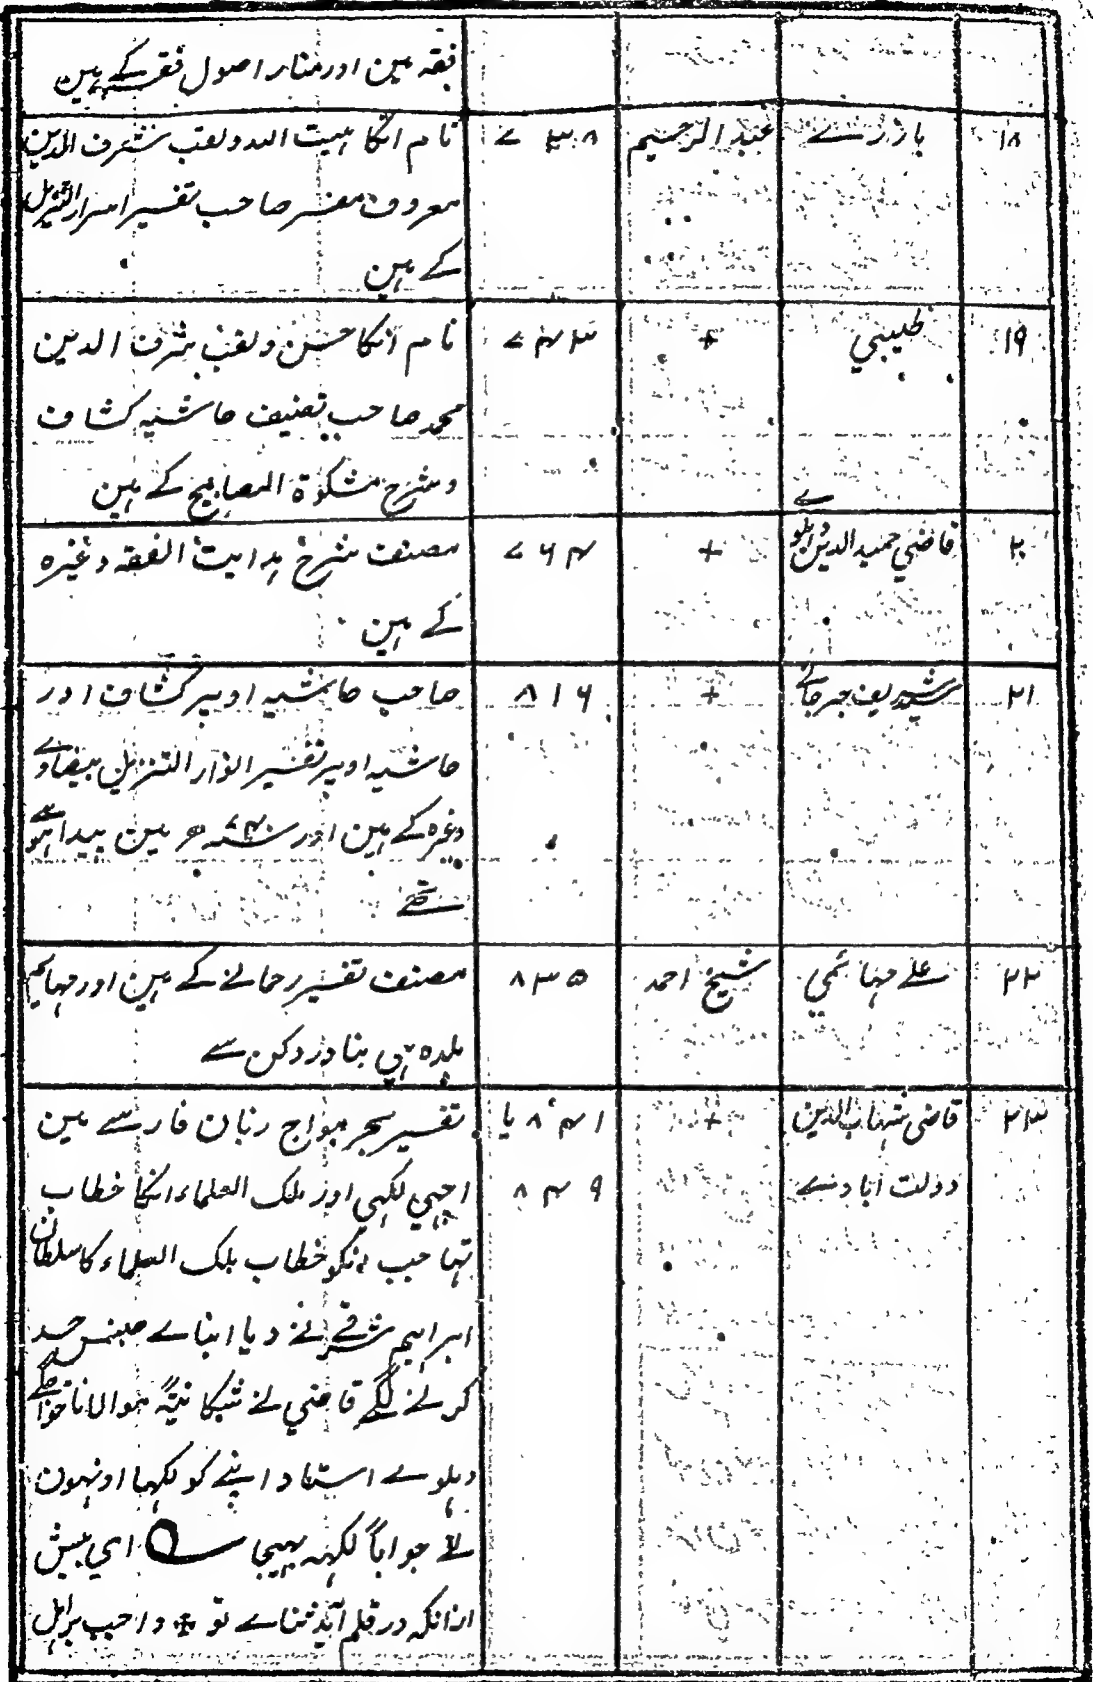 فقہ مین اور منار اصول فقہ کے ہین
۱۸ بازرے عبد الرحیم ۷۳۸ نام انکا ہبت اللہ ولقب شرف الدین
معروف مفسر صاحب تفسیر اسرار التنزیل
کے ہین
۱۹ طیبي + ۷۴۳ نام انکا حسن ولقب شرف الدین
محمد صاحب تصنیف حاشیہ کشاف
وشرح مشکوٰة المصابیح کے ہین
۲۰ قاضي حمید الدین دہلوے + ۷۶۴ مصنف شرح ہدایت الفقہ وغیرہ
کے ہین
۲۱ سید شریف جرجانے + ۸۱۶ صاحب حاشیہ اوپر کشاف اور
حاشیہ اوپر تفسیر انوار التنزیل بیضاوے
وغیرہ کے ہین اور سنہ ۷۴۰ھ مین پیدا ہوے
تھے
۲۲ علے مہائمي شیخ احمد ۸۳۵ مصنف تفسیر رحمانے کے ہین اور مہایم
بلدہ ہی بنادر دکن سے
۲۳ قاضی شہاب الدین + ۸۴۱ یا تفسیر بحر مواج زبان فارسے مین
دولت ابادے ۸۴۹ اچہي لکہي اور ملک العلماء انکا خطاب
تہا جب انکو خطاب ملک العلماء کا سلطان
ابراہیم شرقے نے دیا ابناے جنس حسد
کرنے لگے قاضي نے شکایتہً مولانا خواجگے
دہلوے استاد اپنے کو لکہا اونہون
نے جواباً لکہہ بہیجا اي بیش
ازانکہ در قلم آید ثناے تو + واجب براہل